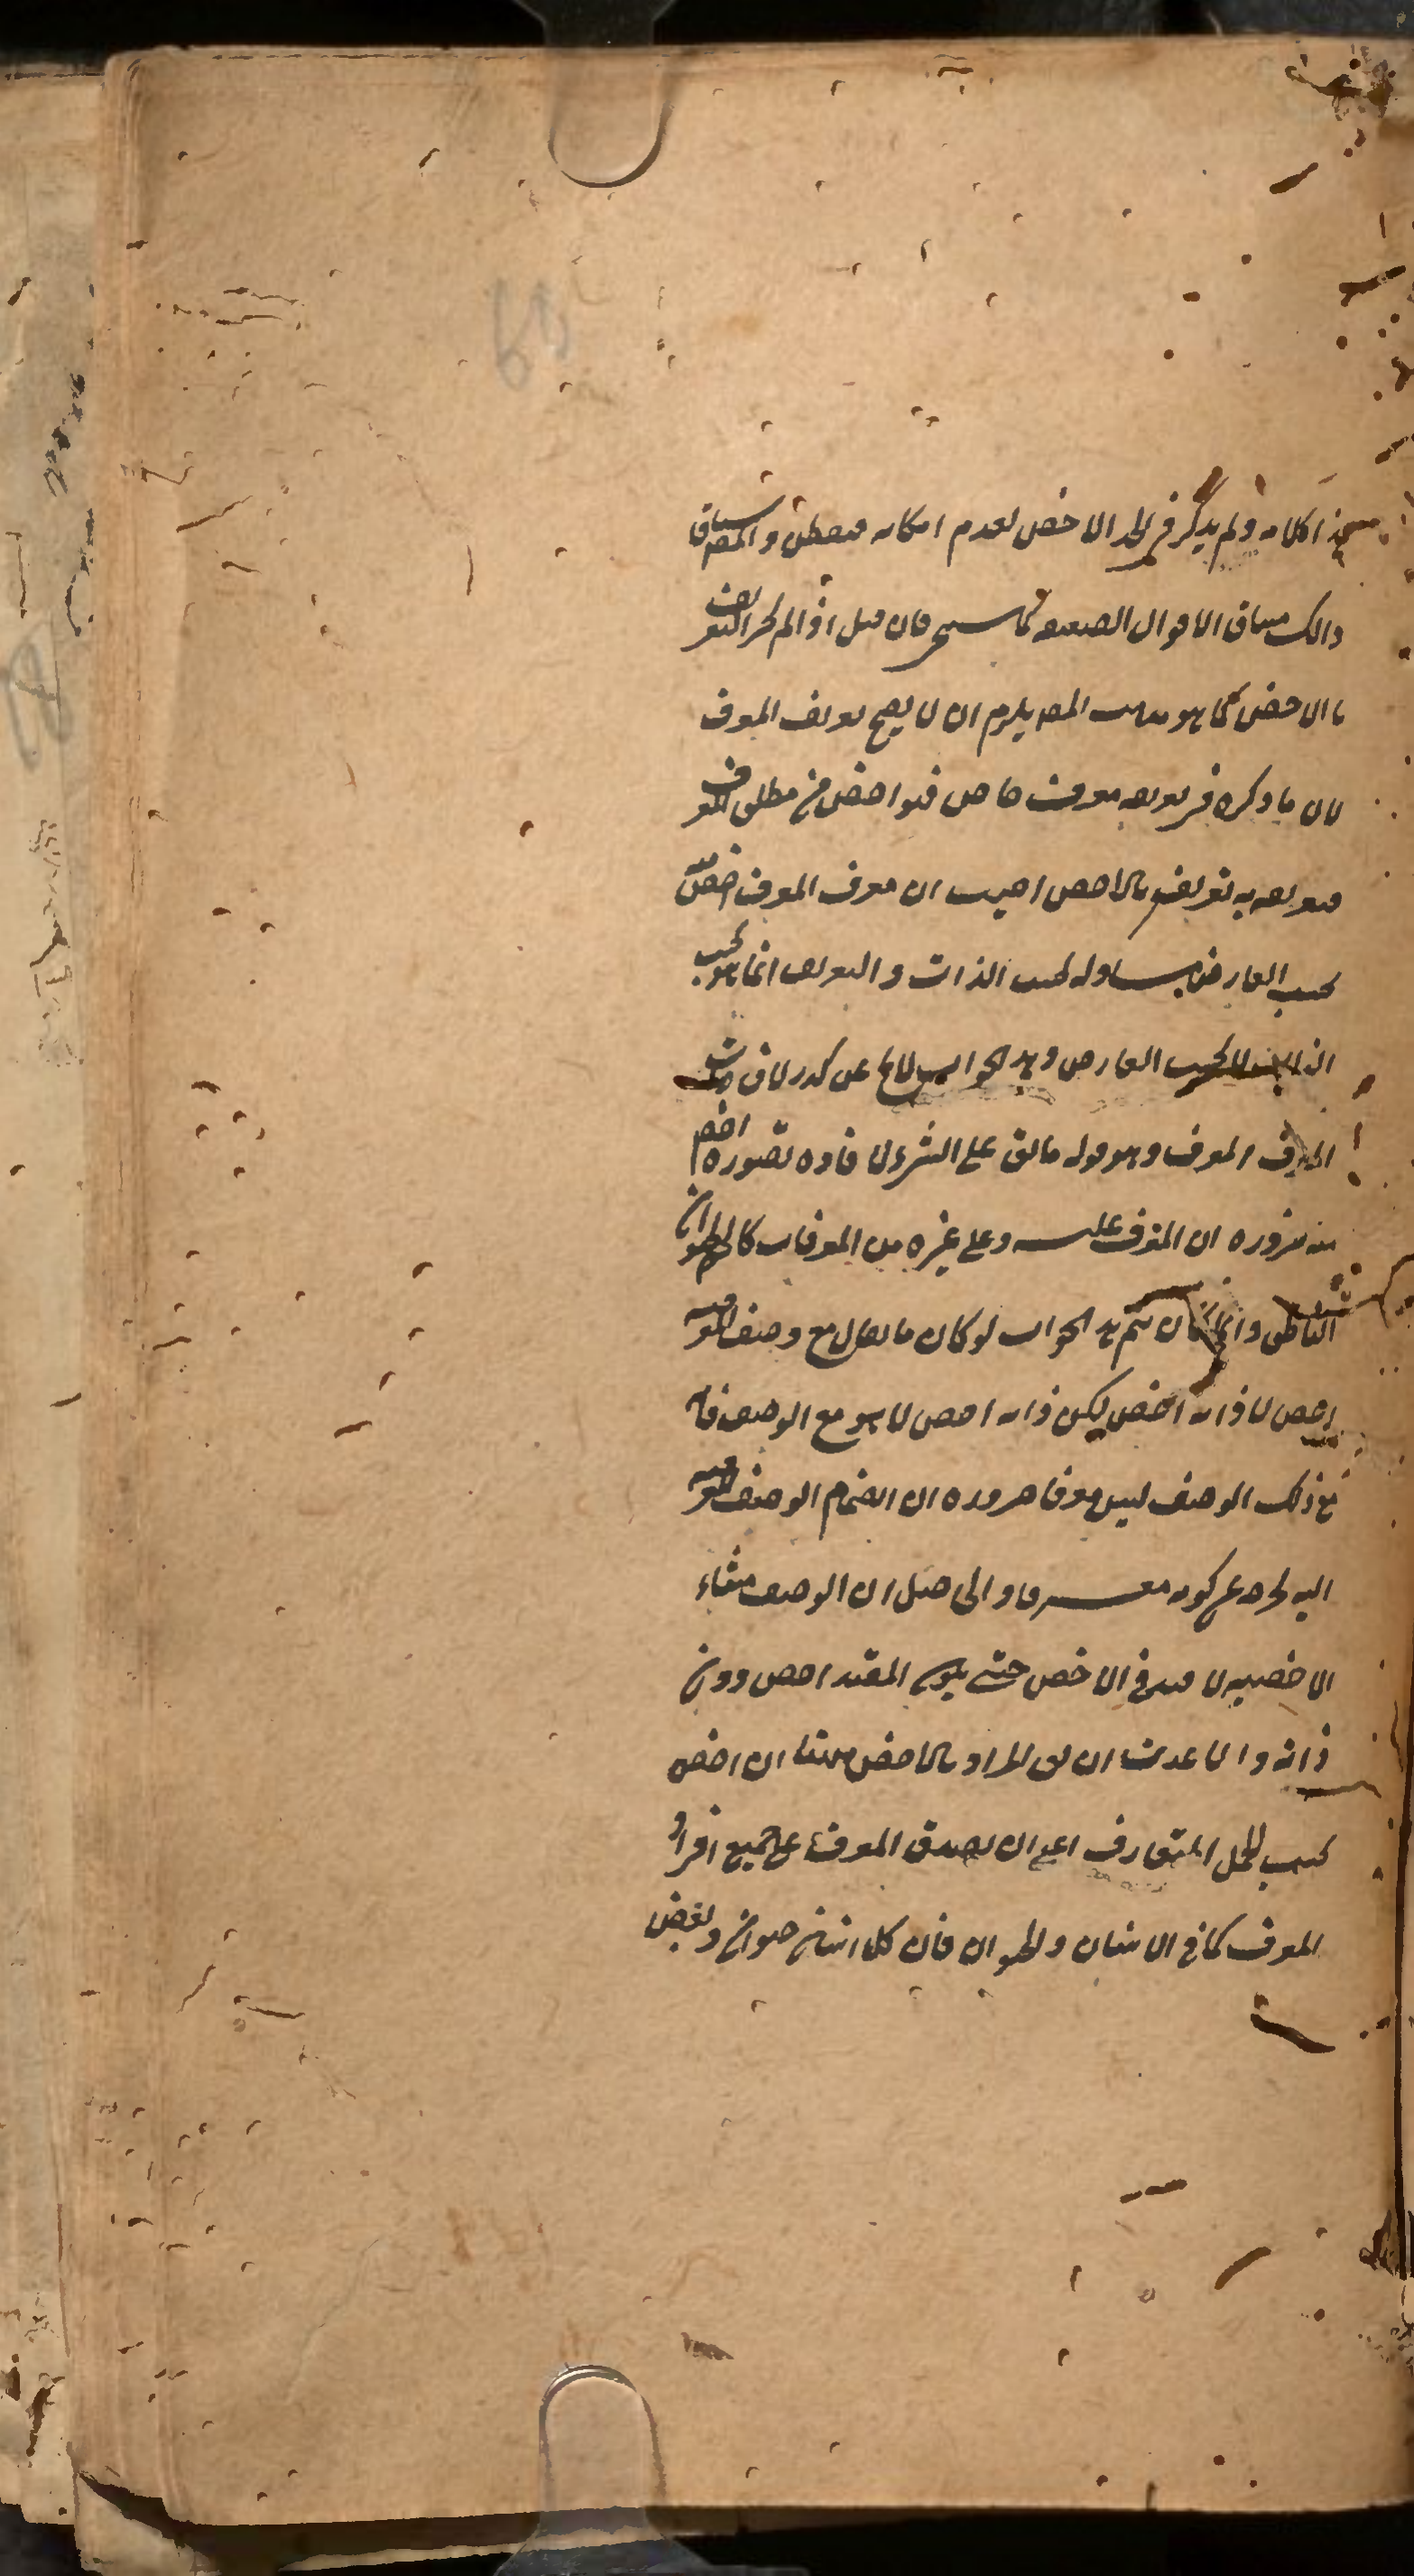 كلامه ولم يذكر في الحد الاخص لعدم امكانه فتفطن والمص ساق
ذالك مساق الاقوال الضعيفة كما سيجي فان قيل اذا لم يجز التعريف
بالاخص كما هو مذهب المص يلزم ان لا يصح تعريف المعرف
لان ما ذكره في تعريفه معرف خاص فهو اخص من مطلق المعرف
فتعريفه به تعريف بالاخص اجيب ان معرف المعرف اخص منه
بحسب العارض مساو له بحسب الذات والتعريف انما هو بحسب
الذات لا بحسب العارض وهذا الجواب لا يخ عن كدر لان ذات
المعرف المعرف وهو قوله ما يق على الشئ لافادة تصوره اخص
منه ضرورة ان المعرف عليه وعلى غيره من المعرفات كالحيوان
الناطق وانما كان يتم هذا الجواب لو كان ما يقال مع وصف المعرفية
اخص لا ذاته اخص ليكن ذاته اخص لا هو مع الوصف فانه
مع ذلك الوصف ليس معرفا ضرورة ان انضمام الوصف المعرفية
اليه يخرجه عن كونه معرفا والحاصل ان الوصف منشاء
الاخصية لا قيد في الاخص حتى يكون المقيد اخص دون
ذاته والاعدت ان يق المراد بالاخص ههنا ان اخص
بحسب الحمل المتعارف اعني ان يصدق المعرف على جميع افراد
المعرف كما في الانسان والحيوان فان كل انسان حيوان وبعض